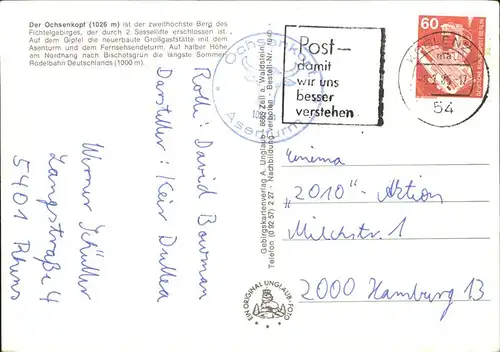 Der Ochsenkopf (1026 m) ist der zweithöchste Berg des
Fichtelgebirges, der durch 2 Sessellifte erschlossen ist.
Auf dem Gipfel die neuerbaute Großgaststätte mit dem
Asenturm und dem Fernsehsendeturm. Auf halber Höhe
am Nordhang nach Bischofsgrün die längste Sommer-
Rodelbahn Deutschlands (1000 m).
Rolle: David Bowman
Darsteller: Keir Dullea
Werner Schüller
Langstraße 4
5401 Rhens
Ochsenkopf
Asenturm
Gebirgskartenverlag A. Unglaub, 8665 Zell a. Waldstein
Telefon (0 92 57) 2 27 - Nachbildung verboten - Bestell-Nr.
EIN ORIGINAL UNGLAUB-FOTO
Post-
damit
wir uns
besser
verstehen
54
60
DEUTSCHE BUNDESPOST BERLIN
Cinema
„2010"-Aktion
Milchstr. 1
2000 Hamburg 13